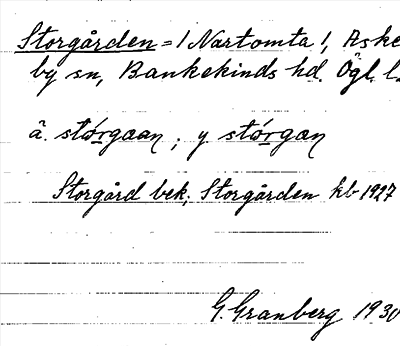 Storgården = / Nartomta /, Aske
by sn, Bankekinds hd. Ögl. l.
ä. stórgaan ; y. stórgan
Storgård bek. Storgården kb 1927
G. Granberg 1930